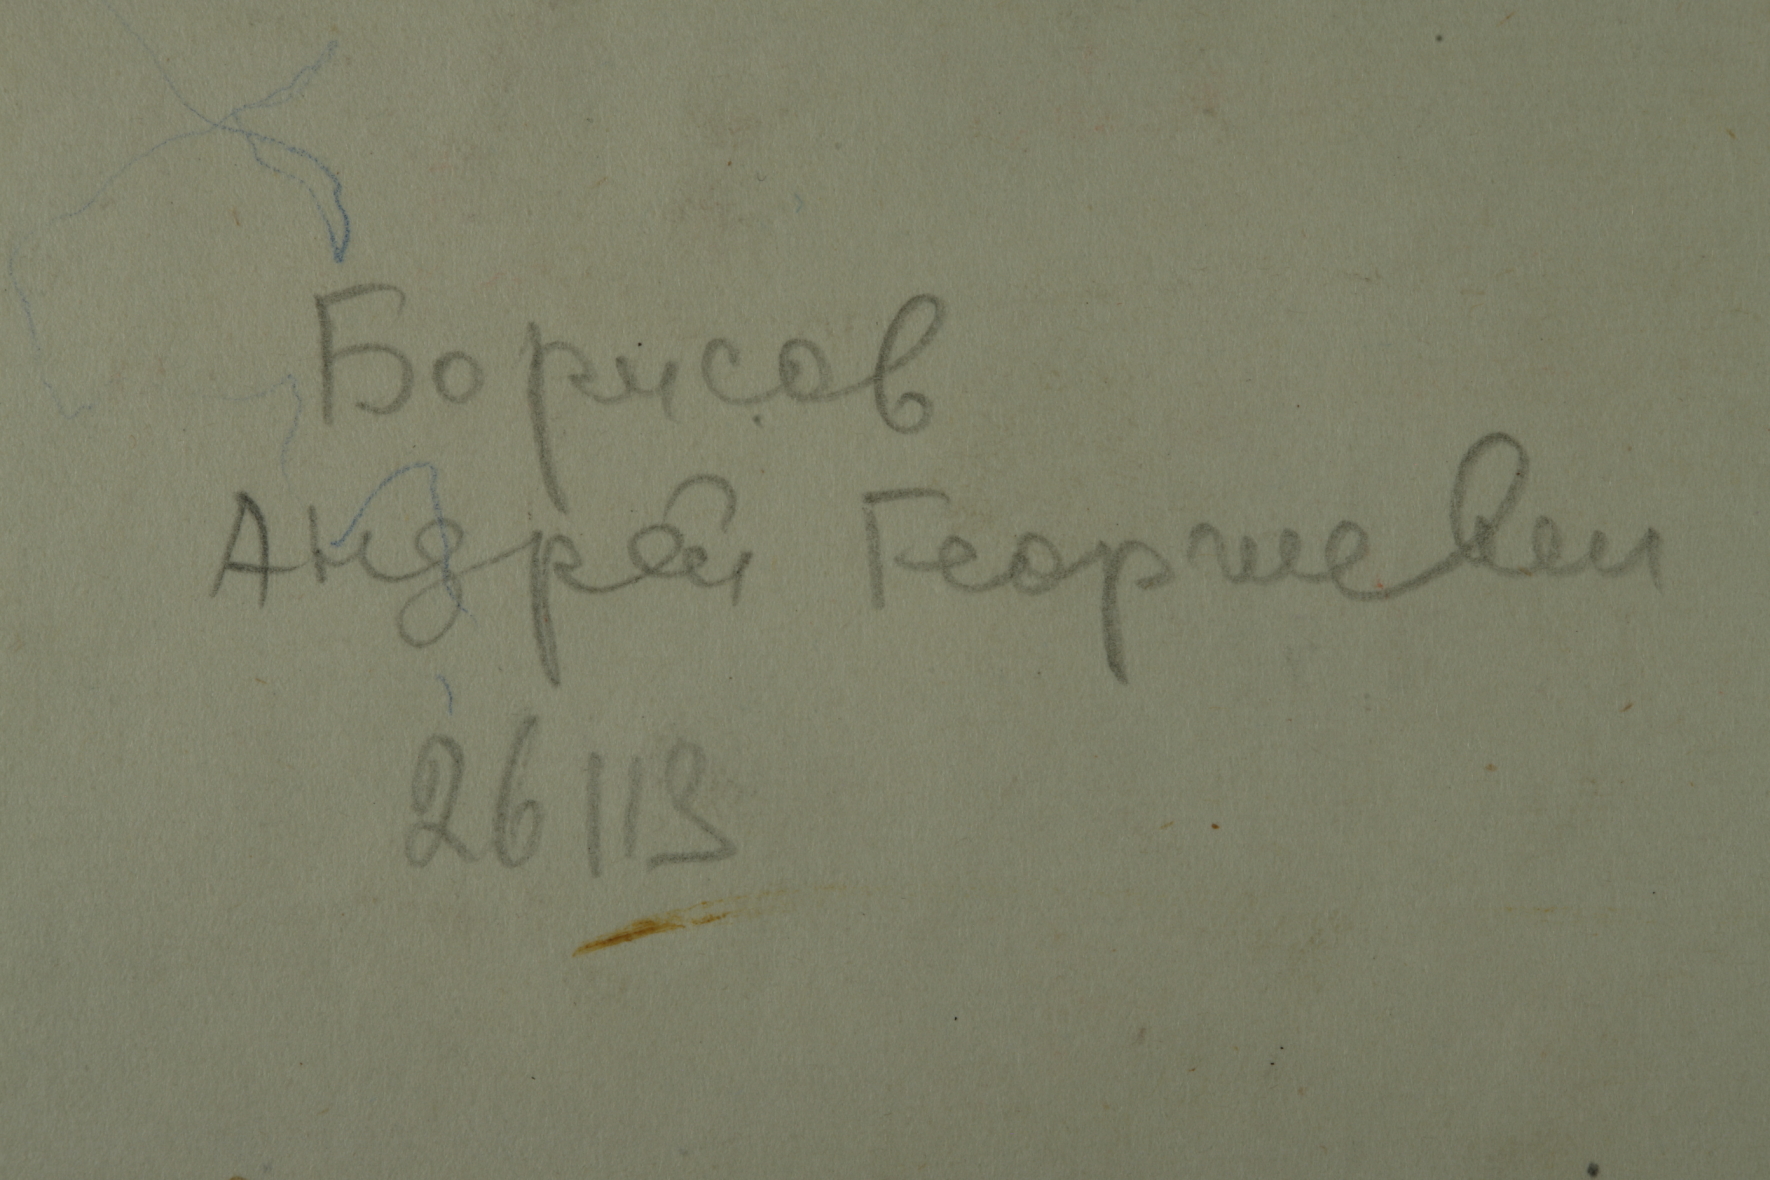 Борисов
Андрей Георгиевич
26113